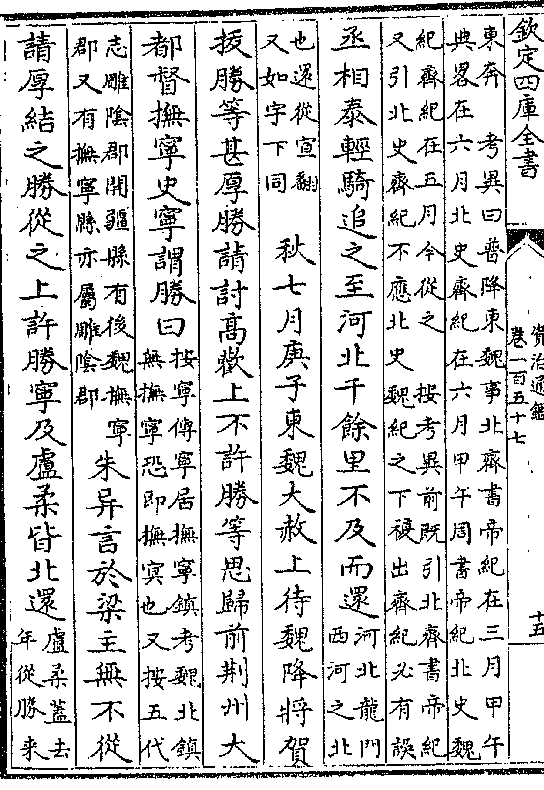 欽定四庫全書
資治通鑑
卷一百五十七
十五
東奔 考異曰普降東魏事北齊書帝紀在三月甲午
典畧在六月北史齊紀在六月甲午周書帝紀北史魏
紀齊紀在五月今從之 按考異前既引北齊書帝紀
又引北史齊紀不應北史魏紀之下複出齊紀必有誤
丞相泰輕騎追之至河北千餘里不及而還河北龍門
西河之北
也還從宣翻
又如字下同 秋七月庚子東魏大赦上待魏降將賀
拔勝等甚厚勝請討高歡上不許勝等思歸前荆州大
都督撫寧史寧謂勝曰按寧傳寧居撫寧鎮考魏北鎮
無撫寧恐即撫㝠也又按五代
志雕陰郡開疆縣有後魏撫寧
郡又有撫寧縣亦屬雕陰郡 朱异言於梁主無不從
請厚結之勝從之上許勝寧及盧柔皆北還盧柔蓋去
年從勝來